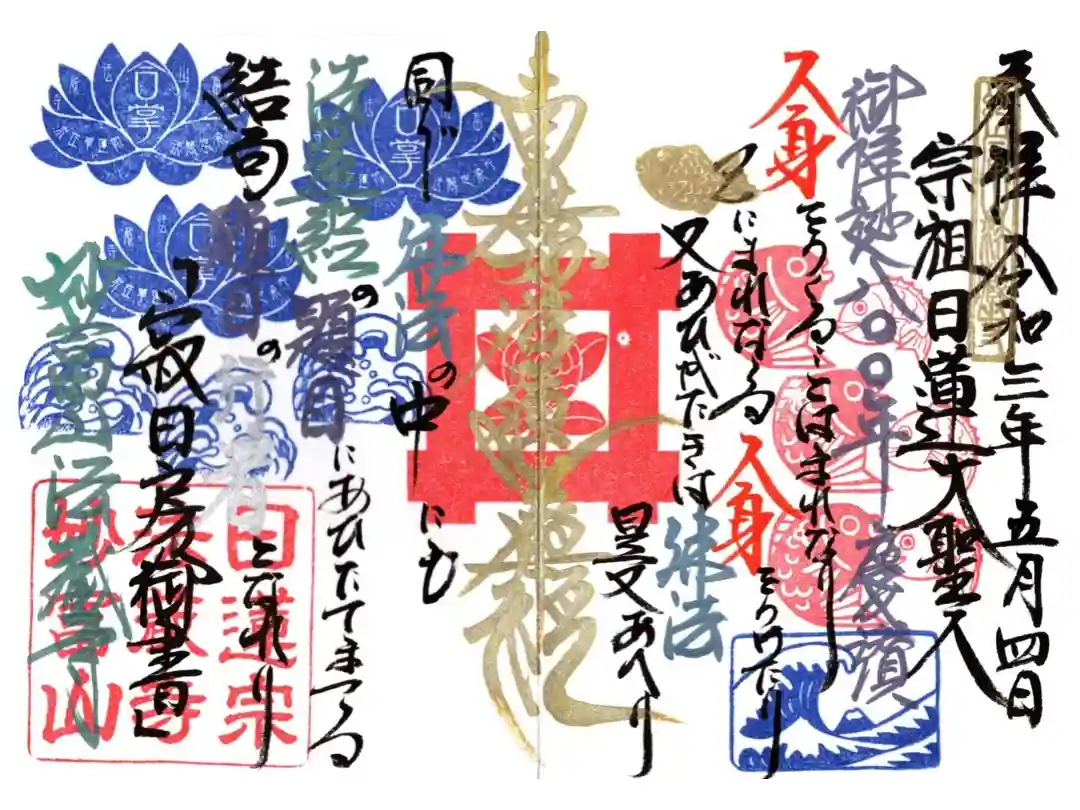 奉拝 令和三年五月四日
宗祖日蓮大聖人
御降誕八〇〇年慶讃
人身をうくることはまれなり
已にまれなる人身をうけたり
又あひがたきは佛法
是又あへり
南無妙法蓮華経
同じ佛法の中にも
法華経の題目にあひたてまつる
結句題目の行者となれり
「寂日房御書」
法蔵寺
合掌
合掌
合掌
日蓮宗
法蔵寺